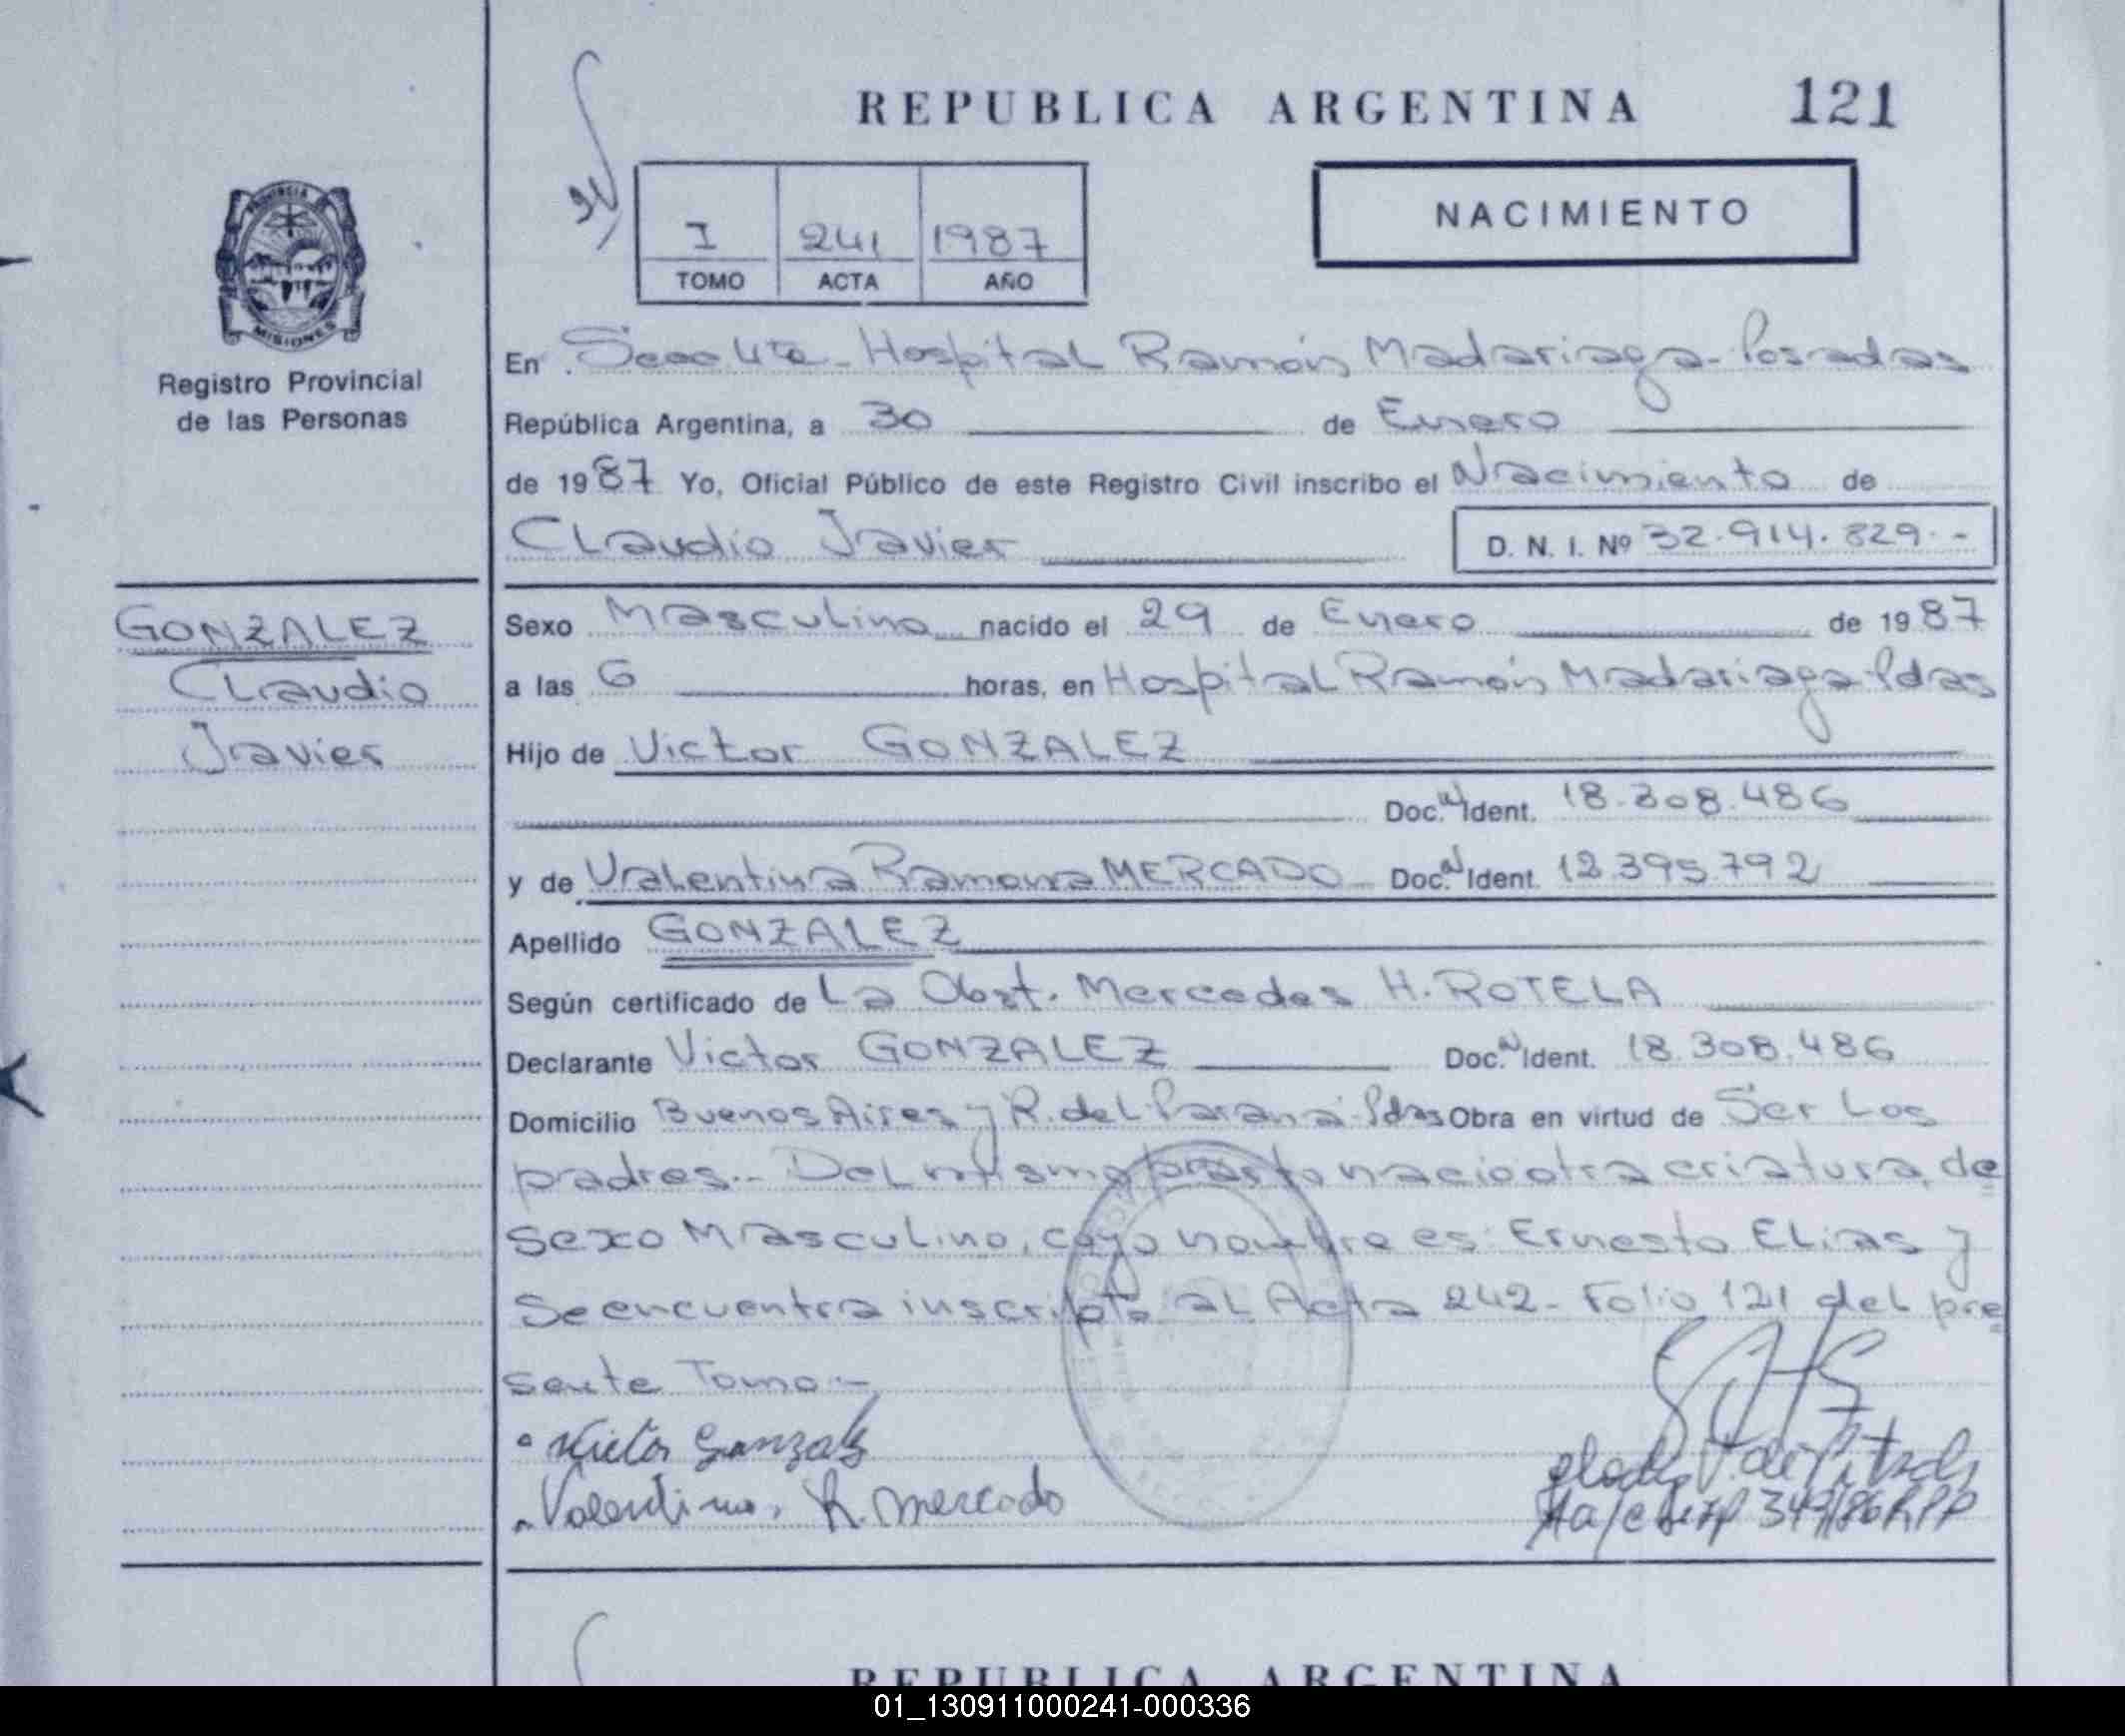 REPUBLICA ARGENTINA 121
I 241 1987
TOMO ACTA AÑO
NACIMIENTO
PROVINCIA DE
MISIONES
Registro Provincial
de las Personas
En Secc 4ta - Hospital Ramón Madariaga - Posadas
República Argentina, a 30 de Enero
de 1987 Yo, Oficial Público de este Registro Civil inscribo el Nacimiento de
Claudio Javier D. N. I. Nº 32.914.829.-
GONZALEZ
Claudio
Javier
Sexo Masculino nacido el 29 de Enero de 1987
a las 6 horas, en Hospital Ramón Madariaga-Pdas
Hijo de Victor GONZALEZ
Doc. Ident. 18.308.486
y de Valentina Ramona MERCADO Doc. Ident. 12.395.792
Apellido GONZALEZ
Según certificado de La Obst. Mercedes H. ROTELA
Declarante Victor GONZALEZ Doc. Ident. 18.308.486
Domicilio Buenos Aires y R. del Paraná-Pdas Obra en virtud de Ser Los
padres.- Del mismo parto nacio otra criatura, de
sexo Masculino, cuyo nombre es: Ernesto Elias y
se encuentra inscripto al Acta 242 - Folio 121 del pre
sente Tomo.-
Victor Gonzalez
Valentina, R. Mercado
349/86 RPP
REPUBLICA ARGENTINA
01_130911000241-000336